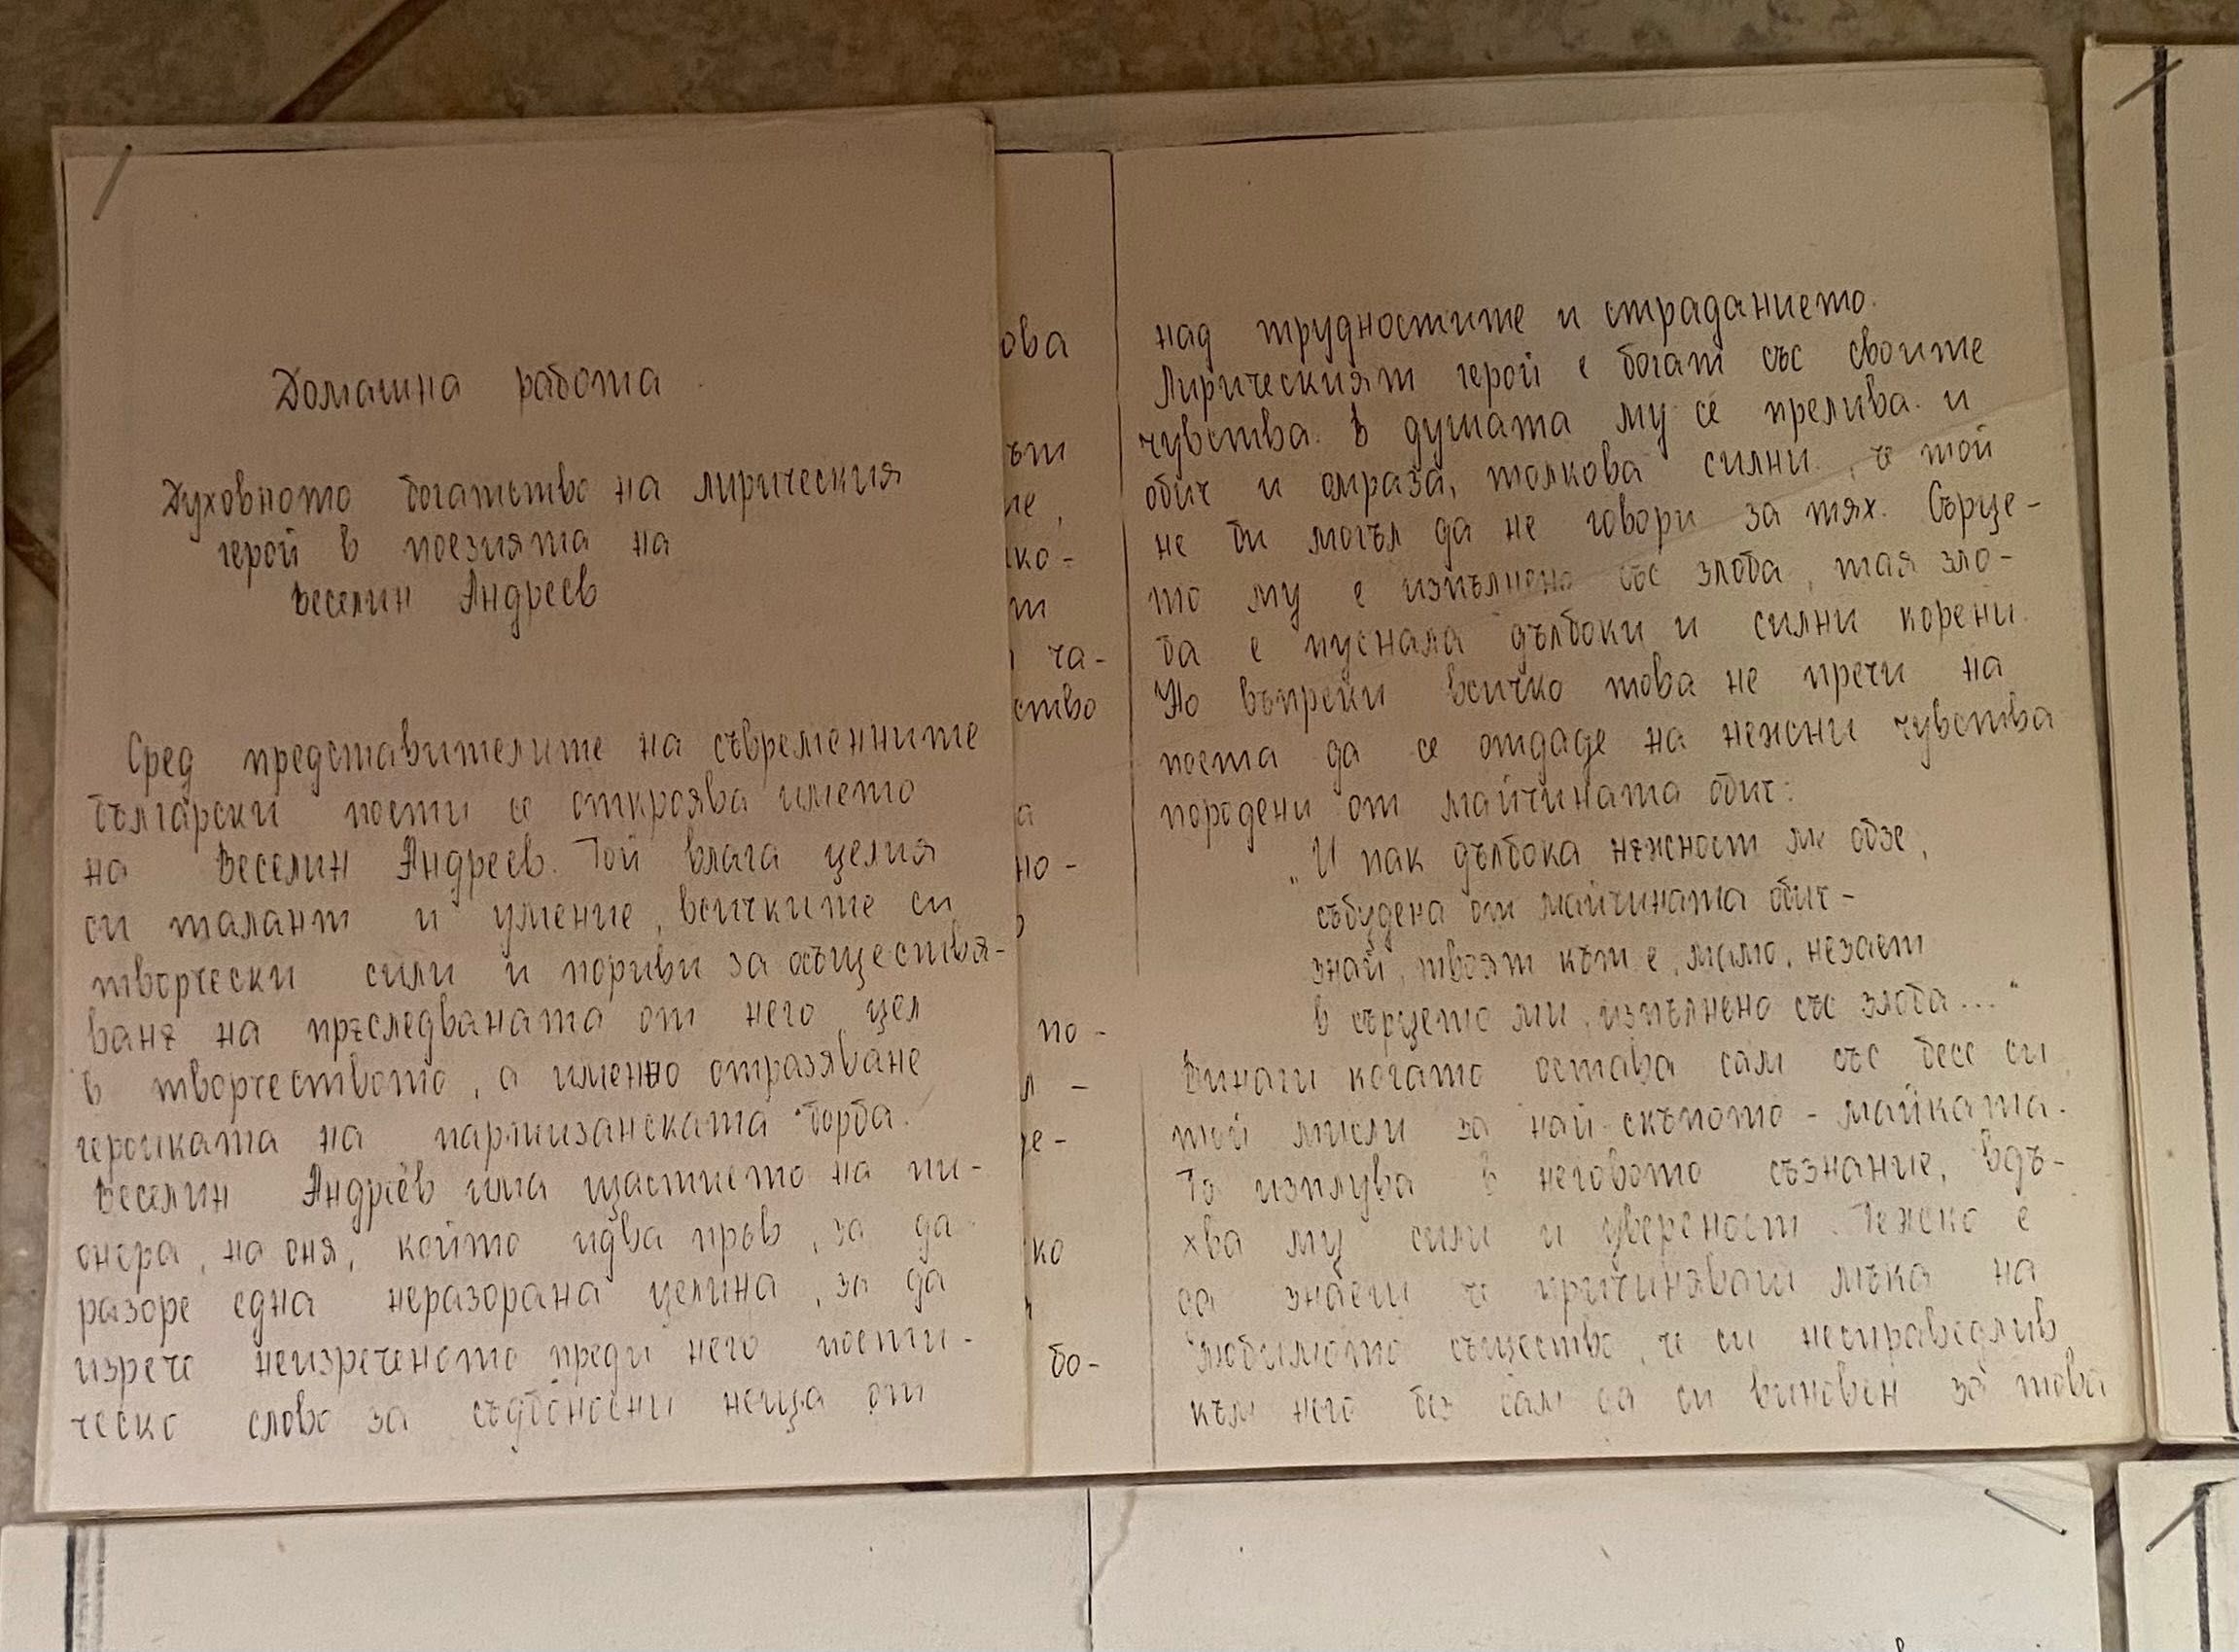 Домашна работа
Духовното богатство на лирическия
герой в поезията на
Веселин Андреев
Сред представителите на съвременните
български поети се откроява името
на Веселин Андреев. Той влага целия
си талант и умение, всичките си
творчески сили и пориви за осъществя-
ване на преследваната от него цел
в творчеството, а именно отразяване
героиката на партизанската борба.
Веселин Андреев има щастието на пи-
онера, на оня, който идва пръв, за да
разоре една неразорана целина, за да
изрече неизреченото преди него поети-
ческо слово за съдбоносни неща от
ова
ът
ие,
ко-
т
ча-
ство
а
но-
по-
л -
ре-
ко
бо-
над трудностите и страданието.
Лирическият герой е богат със своите
чувства. В душата му се прелива и
обич и омраза, толкова силни, че той
не би могъл да не говори за тях. Сърце-
то му е изпълнено със злоба, тая зло-
ба е пуснала дълбоки и силни корени.
Но въпреки всичко това не пречи на
поета да се отдаде на нежни чувства
породени от майчината обич:
„И пак дълбока нежност ме обзе,
събудена от майчината обич -
знай, твоят кът е, мамо, незает
в сърцето ми, изпълнено със злоба..."
Винаги когато остава сам със себе си
той мисли за най-скъпото - майката.
Тя изплува в неговото съзнание, вдъ-
хва му сили и увереност. Тежко е
да знаеш че причиняваш мъка на
любимото същество, че си несправедлив
към него без сам да си виновен за това